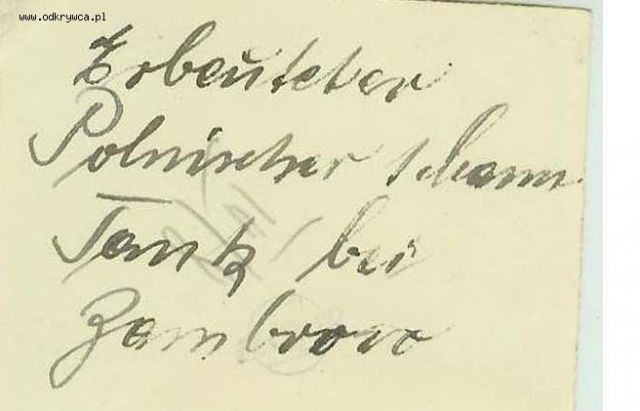 www.odkrywca.pl
Erbeuteter
Polnischer 1 Mann
Tank bei
Zambrowo